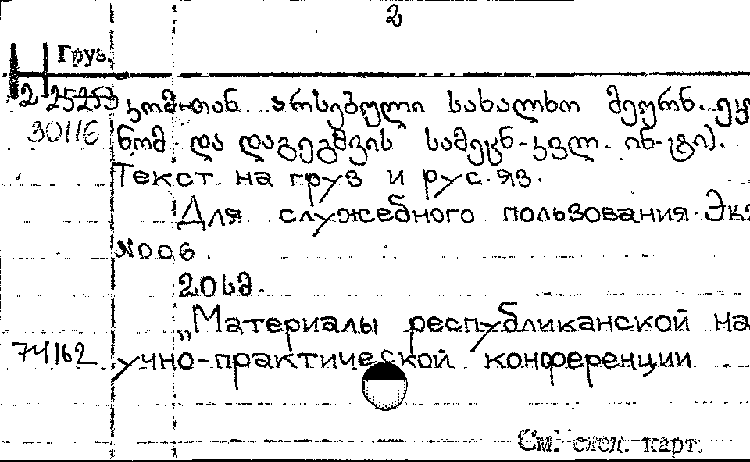 2
Груз.
2 25253 კომ-თან არსებული სახალხო მეურნ. ეკ
30116 ნომ და დაგეგმვის სამეცნ-კვლ. ინ-ტი).
Текст на груз и рус. яз.
Для служебного пользования. Экз
№006
20სმ.
„Материалы республиканской на
74162 учно-практической конференции
См. след. карт.